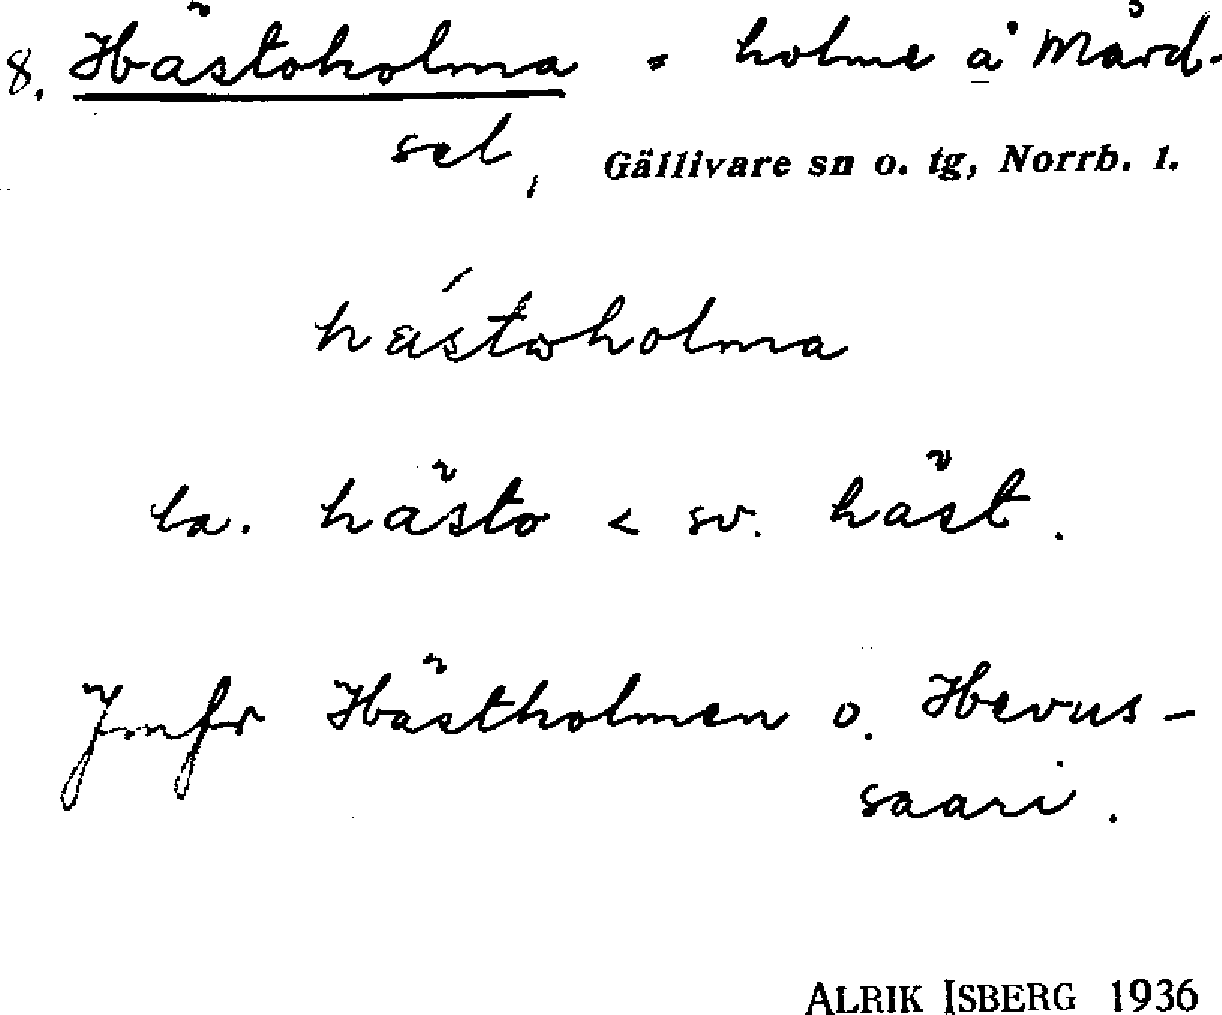 8. Hästoholma = holme å Mård-
sel, Gällivare sn o. tg, Norrb. l.
hástoholma
la. hästo < sv. häst.
Jmfr Hästholmen o. Hevus-
saari.
ALRIK ISBERG 1936